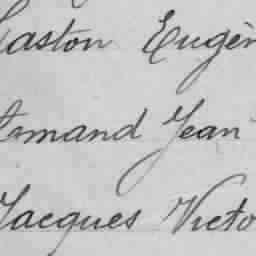 Gaston Eugèn
Armand Jean
Jacques Victo